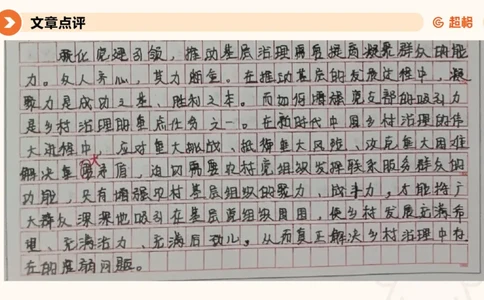 文章点评
超格
强化党建引领，推动基层治理需有提高凝聚群众的能
力。众人齐心，其力断金。在推动基层的发展过程中，凝
聚力是成功之基、胜利之本。而如何增强党支部的吸引力
是乡村治理的重点任务之一。在新时代中国乡村治理的伟
大流程中，应对重大挑战、抵御重大风险、攻克重大困难
解决重大矛盾，迫切需要农村党组织发挥联系服务群众的
功能，只有增强农村基层组织的聚力、战斗力，才能将广
大群众深深地吸引在基层党组织周围，使乡村发展充满希
望、充满活力、充满后劲儿。从而真正解决乡村治理中存
在的虚弱问题。